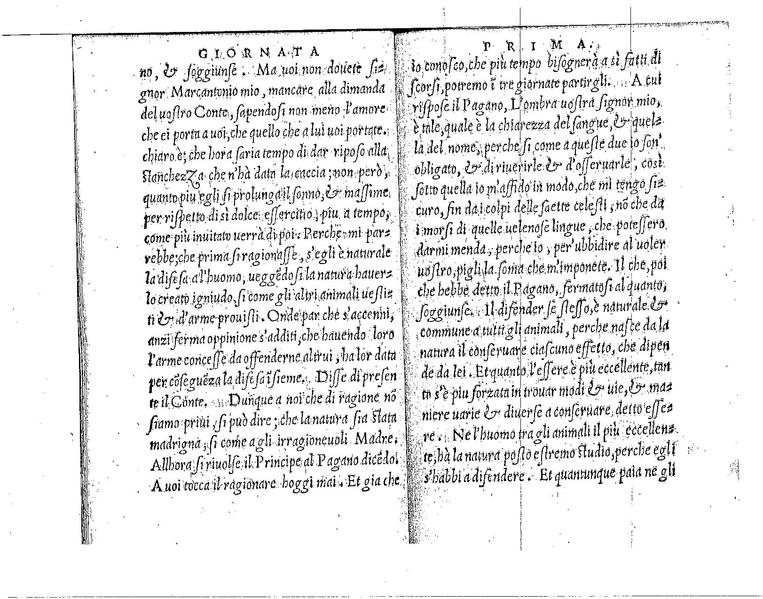 GIORNATA
no, & soggiunse. Ma uoi non douete si-
gnor Marcantonio mio, mancare alla dimanda
del uostro Conte, sapendosi non meno l'amore
che ei porta a uoi, che quello che a lui uoi portate.
chiaro è; che hora saria tempo di dar riposo alla
stanchezza che n'hà data la caccia; non però,
quanto piu egli si prolunga il sonno, & massime
per rispetto di sì dolce essercitio; piu a tempo,
come più inuitato uerrà di poi. Perche mi par-
rebbe; che prima si ragionasse, s'egli è naturale
la difesa a l'huomo, ueggẽdo si la natura hauer-
lo creato igniudo, si come gli altri animali uesti-
ti & d'arme prouisti. Onde par che s'accenni,
anzi ferma oppinione s'additi, che hauendo loro
l'arme concesse da offenderne altrui, ha lor data
per cõsegueza la difesa ĩsieme. Disse di presen
te il Conte. Dunque a noi che di ragione nõ
siamo priui, si può dire; che la natura sia stata
madrigna, si come a gli irragioneuoli Madre.
Allhora si riuolse il Principe al Pagano dicẽdo.
A uoi tocca il ragionare hoggi mai. Et gia che
PRIMA.
io conosco, che più tempo bisognerà a sì fatti di
scorsi, potremo ĩ tre giornate partirgli. A cui
rispose il Pagano, L'ombra uostra signor mio,
è tale, quale è la chiarezza del sangue, & quel-
la del nome, perche si come a queste due io son'
obligato, & di riuerirle & d'osseruarle, così
sotto quella io m'affido in modo, che mi tengo si-
curo, fin da i colpi delle saette celesti, nõ che da
i morsi di quelle uelenose lingue, che potessero
darmi menda, perche io, per'ubbidire al uoler
uostro, pigli la soma che m'imponete. Il che, poi
che hebbe detto il Pagano, fermatosi al quanto,
soggiunse. Il difender se stesso, è naturale &
commune a tutti gli animali, perche nasce da la
natura il conseruare ciascuno effetto, che dipen
de da lei. Et quanto l'essere è piu eccellente, tan
to s'è piu forzata in trouar modi & uie, & ma-
niere uarie & diuerse a conseruare detto esse-
re. Ne l'huomo tra gli animali il piu eccellen-
te, hà la natura posto estremo studio, perche egli
s'habbi a difendere. Et quantunque paia ne gli